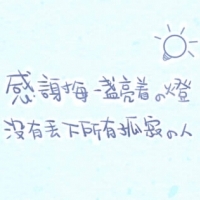 感謝每一盞亮着の燈
沒有丟下所有孤寂の人